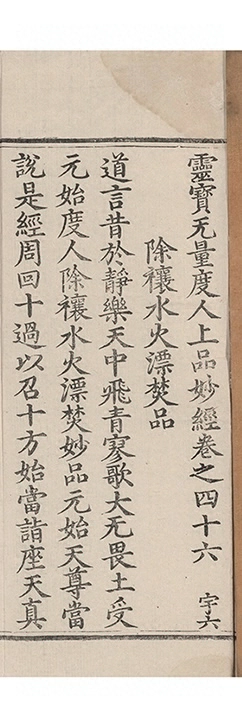 靈寶无量度人上品妙經卷之四十六 字六
除禳水火漂焚品
道言昔於靜樂天中飛青寥歌大无畏土受
元始度人除禳水火漂焚妙品元始天尊當
說是經周回十過以召十方始當詣座天真